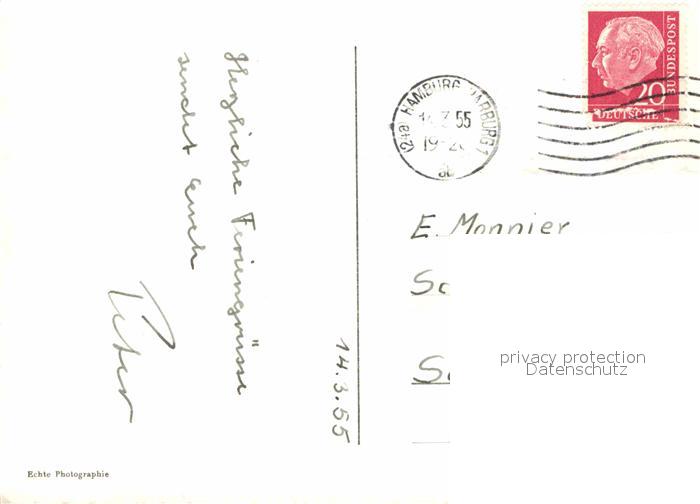 Herzliche Feriengrüsse
sendet Euch
Peter
14.3.55
Echte Photographie
(24a) HAMBURG-HARBURG 1
55
19-20
ab
20
DEUTSCHE
BUNDESPOST
E. Monnier
privacy protection
Datenschutz